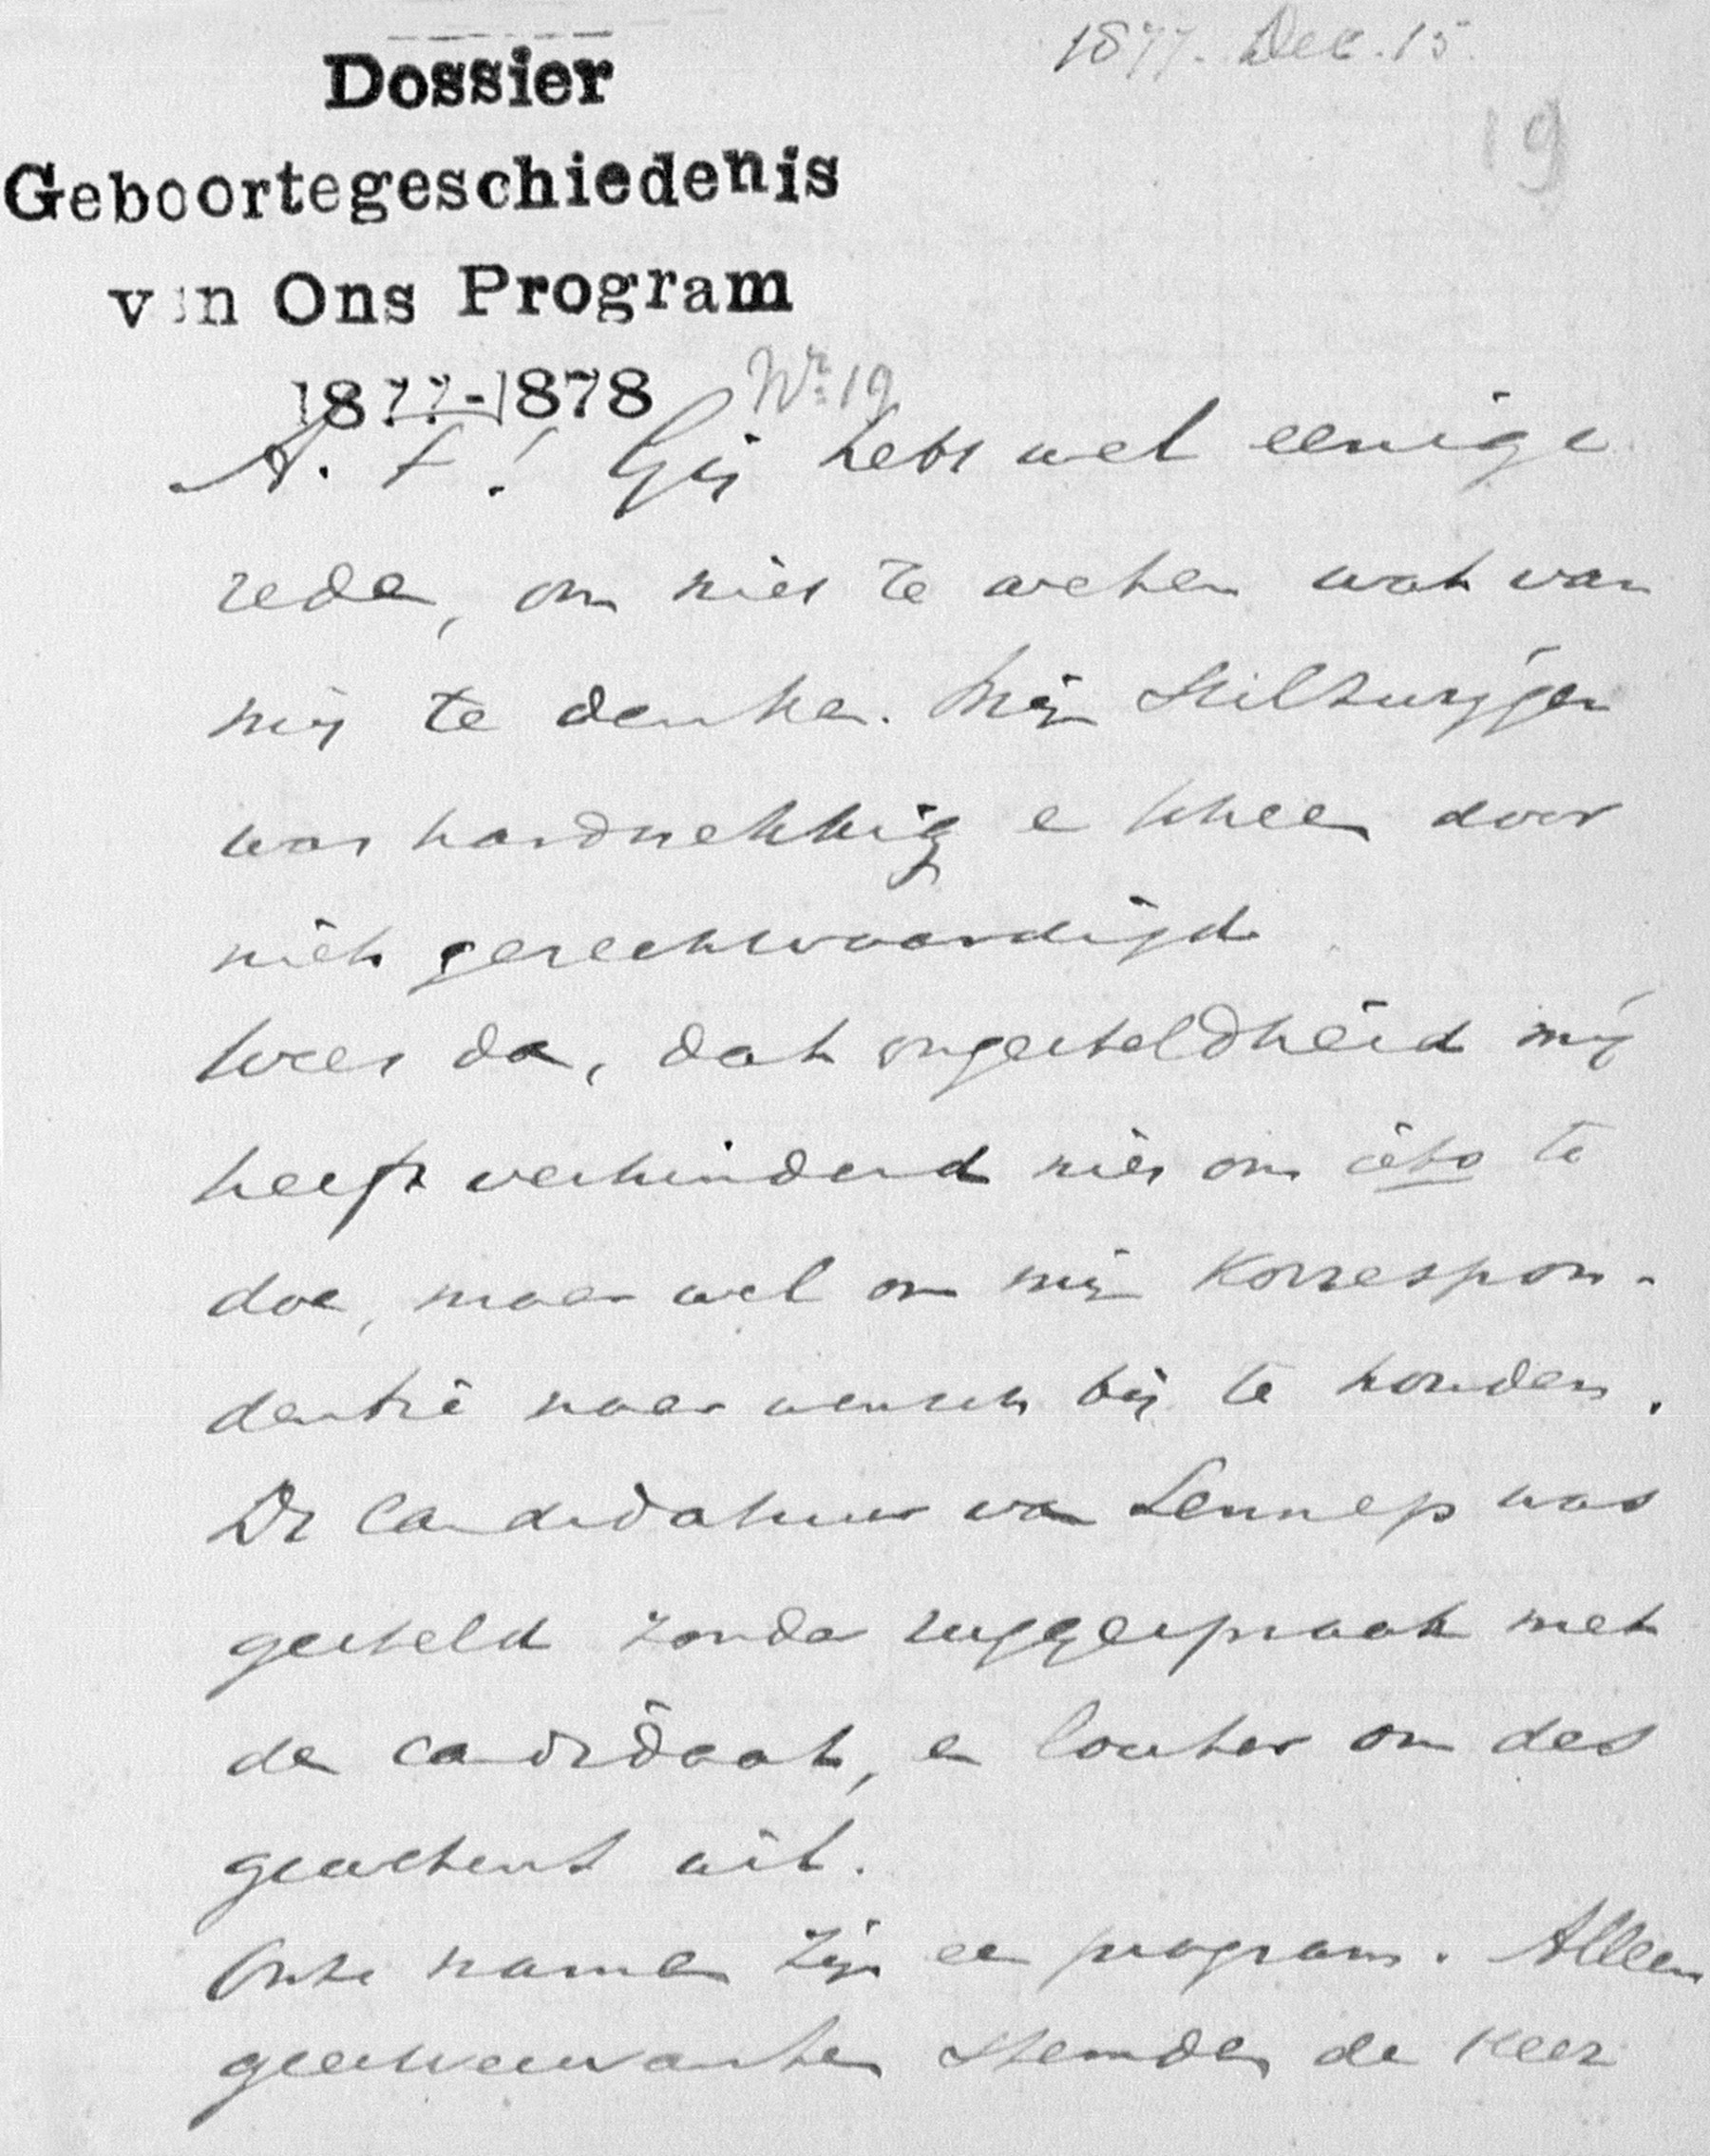 1877. Dec. 15.
19
Dossier
Geboortegeschiedenis
van Ons Program
1877-1878 Nr. 19
A. F.! Gij hebt wel eenige
rede, om niet te weten wat van
mij te denken. Mijn stilzwijgen
was hardnekkig en scheen door
niets gerechtvaardigd.
Weet dan, dat ongesteldheid mij
heeft verhinderd niet om iets te
doen, maar wel om mijn Korrespon-
dentie naar wensch bij te houden.
De Candidatuur van Lennep was
gesteld zonder ruggespraak met
den candidaat, en louter om des
gewetens wil.
Onze namen zijn een program. Alleen
geestverwanten stemden de keer